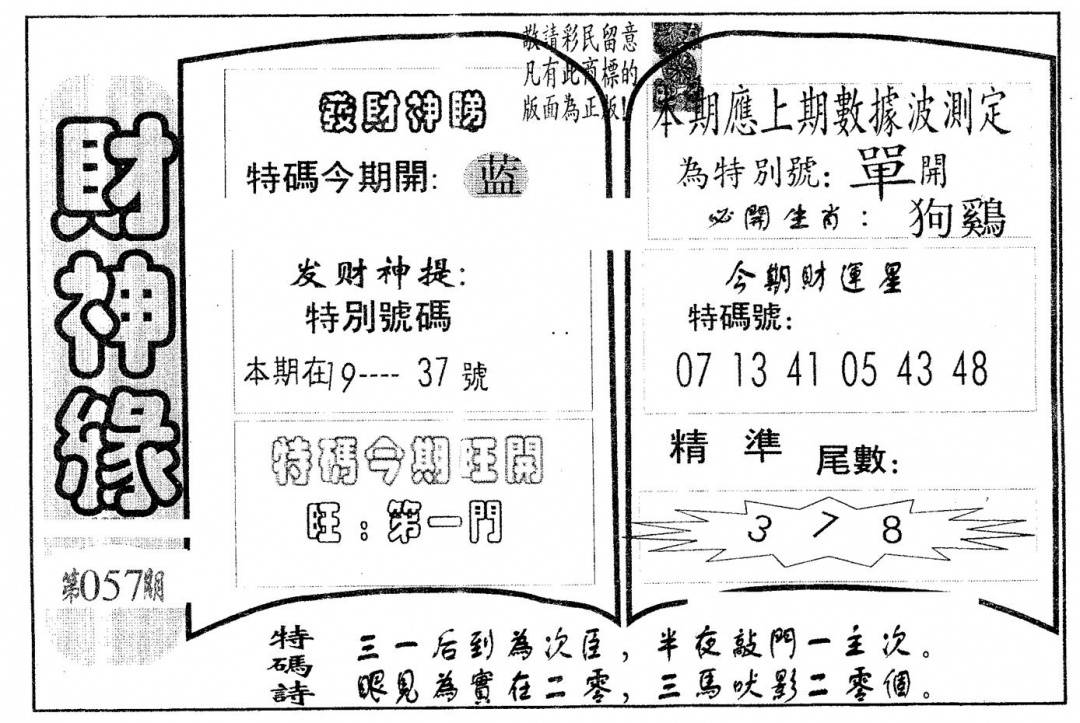 財神緣
第057期
敬請彩民留意
凡有此商標的
版面為正版!
發財神賜
特碼今期開: 蓝
发财神提:
特别號碼
本期在19---- 37 號
特碼今期旺開
旺:第一門
本期應上期數據波測定
為特别號: 單開
必開生肖: 狗鷄
今期財運星
特碼號:
07 13 41 05 43 48
精準 尾數:
3 7 8
特碼詩
三一后到為次臣,半夜敲門一主次。
眼見為實在二零,三馬吠影二零個。